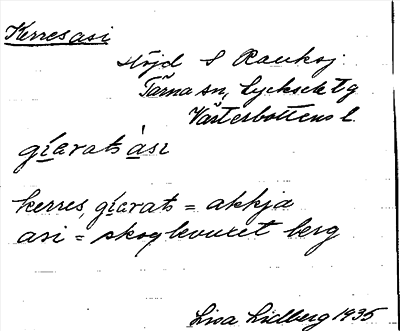 Kerresasi
Höjd S Raukaj.
Tärna sn, Lycksele tg
Västerbottens l.
gíεrats àsi
kerres, gíεrats = akkja
asi = skogbevuxet berg
Lisa Lidberg 1935